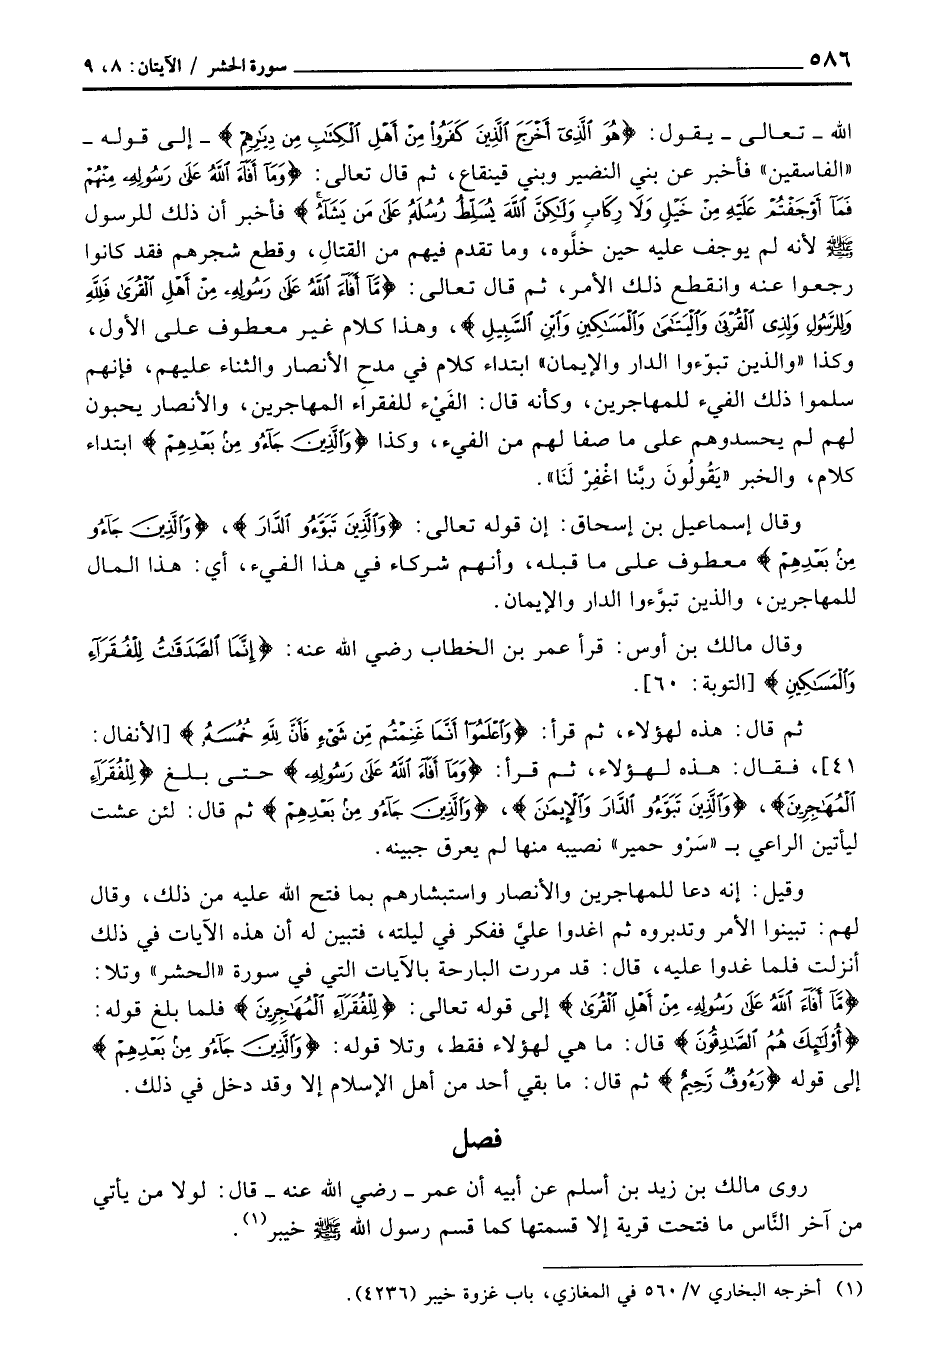 ٥٨٦ سورة الحشر / الآيتان: ٨، ٩
الله ـ تـعـالى ـ يـقـول: ﴿هُوَ ٱلَّذِىٓ أَخْرَجَ ٱلَّذِينَ كَفَرُوا۟ مِنْ أَهْلِ ٱلْكِتَٰبِ مِن دِيَٰرِهِمْ﴾ ـ إلى قـولـه ـ
«الفاسقين» فأخبر عن بني النضير وبني قينقاع، ثم قال تعالى: ﴿وَمَآ أَفَآءَ ٱللَّهُ عَلَىٰ رَسُولِهِۦ مِنْهُمْ
فَمَآ أَوْجَفْتُمْ عَلَيْهِ مِنْ خَيْلٍ وَلَا رِكَابٍ وَلَٰكِنَّ ٱللَّهَ يُسَلِّطُ رُسُلَهُۥ عَلَىٰ مَن يَشَآءُ﴾ فأخبر أن ذلك للرسول
ﷺ لأنه لم يوجف عليه حين خلَّوه، وما تقدم فيهم من القتال، وقطع شجرهم فقد كانوا
رجعوا عنه وانقطع ذلك الأمر، ثم قال تعالى: ﴿مَّآ أَفَآءَ ٱللَّهُ عَلَىٰ رَسُولِهِۦ مِنْ أَهْلِ ٱلْقُرَىٰ فَلِلَّهِ
وَلِلرَّسُولِ وَلِذِى ٱلْقُرْبَىٰ وَٱلْيَتَٰمَىٰ وَٱلْمَسَٰكِينِ وَٱبْنِ ٱلسَّبِيلِ﴾، وهذا كلام غير معطوف على الأول،
وكذا «والذين تبوّءوا الدار والإيمان» ابتداء كلام في مدح الأنصار والثناء عليهم، فإنهم
سلموا ذلك الفيء للمهاجرين، وكأنه قال: الفَيْء للفقراء المهاجرين، والأنصار يحبون
لهم لم يحسدوهم على ما صفا لهم من الفيء، وكذا ﴿وَٱلَّذِينَ جَآءُو مِنۢ بَعْدِهِمْ﴾ ابتداء
كلام، والخبر «يَقُولُونَ ربَّنا اغْفِرْ لَنَا».
وقال إسماعيل بن إسحاق: إن قوله تعالى: ﴿وَٱلَّذِينَ تَبَوَّءُو ٱلدَّارَ﴾، ﴿وَٱلَّذِينَ جَآءُو
مِنۢ بَعْدِهِمْ﴾ معطوف على ما قبله، وأنهم شركاء في هذا الفيء، أي: هذا المال
للمهاجرين، والذين تبوَّءوا الدار والإيمان.
وقال مالك بن أوس: قرأ عمر بن الخطاب رضي الله عنه: ﴿إِنَّمَا ٱلصَّدَقَٰتُ لِلْفُقَرَآءِ
وَٱلْمَسَٰكِينِ﴾ [التوبة: ٦٠].
ثم قال: هذه لهؤلاء، ثم قرأ: ﴿وَٱعْلَمُوٓا۟ أَنَّمَا غَنِمْتُم مِّن شَىْءٍ فَأَنَّ لِلَّهِ خُمُسَهُۥ﴾ [الأنفال:
٤١]، فـقـال: هـذه لـهـؤلاء، ثـم قـرأ: ﴿وَمَآ أَفَآءَ ٱللَّهُ عَلَىٰ رَسُولِهِۦ﴾ حـتـى بـلـغ ﴿لِلْفُقَرَآءِ
ٱلْمُهَٰجِرِينَ﴾، ﴿وَٱلَّذِينَ تَبَوَّءُو ٱلدَّارَ وَٱلْإِيمَٰنَ﴾، ﴿وَٱلَّذِينَ جَآءُو مِنۢ بَعْدِهِمْ﴾ ثم قال: لئن عشت
ليأتين الراعي بـ «سَرْو حمير» نصيبه منها لم يعرق جبينه.
وقيل: إنه دعا للمهاجرين والأنصار واستبشارهم بما فتح الله عليه من ذلك، وقال
لهم: تبينوا الأمر وتدبروه ثم اغدوا عليَّ ففكر في ليلته، فتبين له أن هذه الآيات في ذلك
أنزلت فلما غدوا عليه، قال: قد مررت البارحة بالآيات التي في سورة «الحشر» وتلا:
﴿مَّآ أَفَآءَ ٱللَّهُ عَلَىٰ رَسُولِهِۦ مِنْ أَهْلِ ٱلْقُرَىٰ﴾ إلى قوله تعالى: ﴿لِلْفُقَرَآءِ ٱلْمُهَٰجِرِينَ﴾ فلما بلغ قوله:
﴿أُو۟لَٰٓئِكَ هُمُ ٱلصَّٰدِقُونَ﴾ قال: ما هي لهؤلاء فقط، وتلا قوله: ﴿وَٱلَّذِينَ جَآءُو مِنۢ بَعْدِهِمْ﴾
إلى قوله ﴿رَءُوفٌ رَّحِيمٌ﴾ ثم قال: ما بقي أحد من أهل الإسلام إلا وقد دخل في ذلك.
فصل
روى مالك بن زيد بن أسلم عن أبيه أن عمر ـ رضي الله عنه ـ قال: لولا من يأتي
من آخر النَّاس ما فتحت قرية إلا قسمتها كما قسم رسول الله ﷺ خيبر(١).
(١) أخرجه البخاري ٧/ ٥٦٠ في المغازي، باب غزوة خيبر (٤٢٣٦).